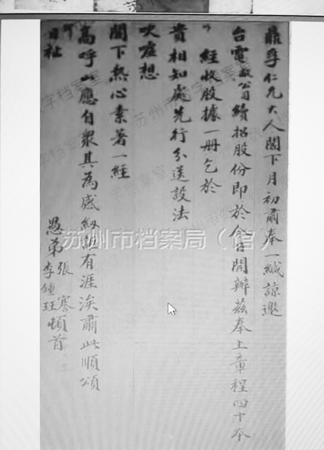 鼎孚仁兄大人閣下月初肅奉一緘諒邀
台電敝公司續招股份即於今日開辦茲奉上章程四十本
經收股據一冊乞於
貴相知處先行分送設法
吹噓想
閣下熱心素著一經
高呼山應自衆其為感紉有涯涘肅此順頌
日祉
愚弟張謇
李鍾珏頓首
苏州市档案局(馆